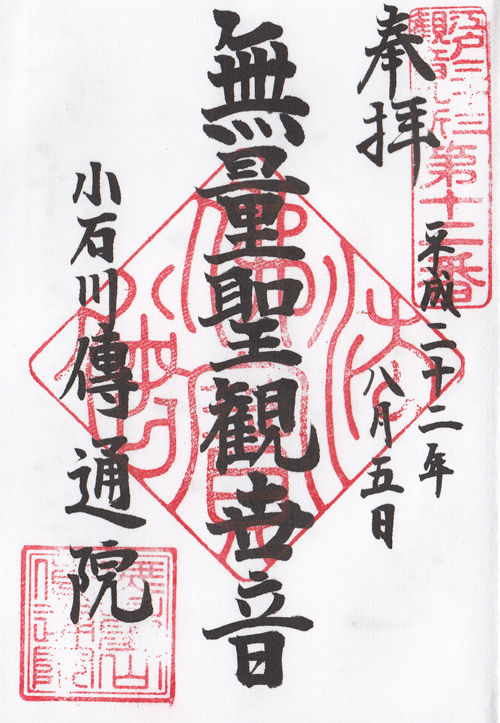 江戸三十三
観音札所第十二番
奉拝
平成二十二年
八月五日
無量聖観世音
小石川傳通院
佛法僧寶